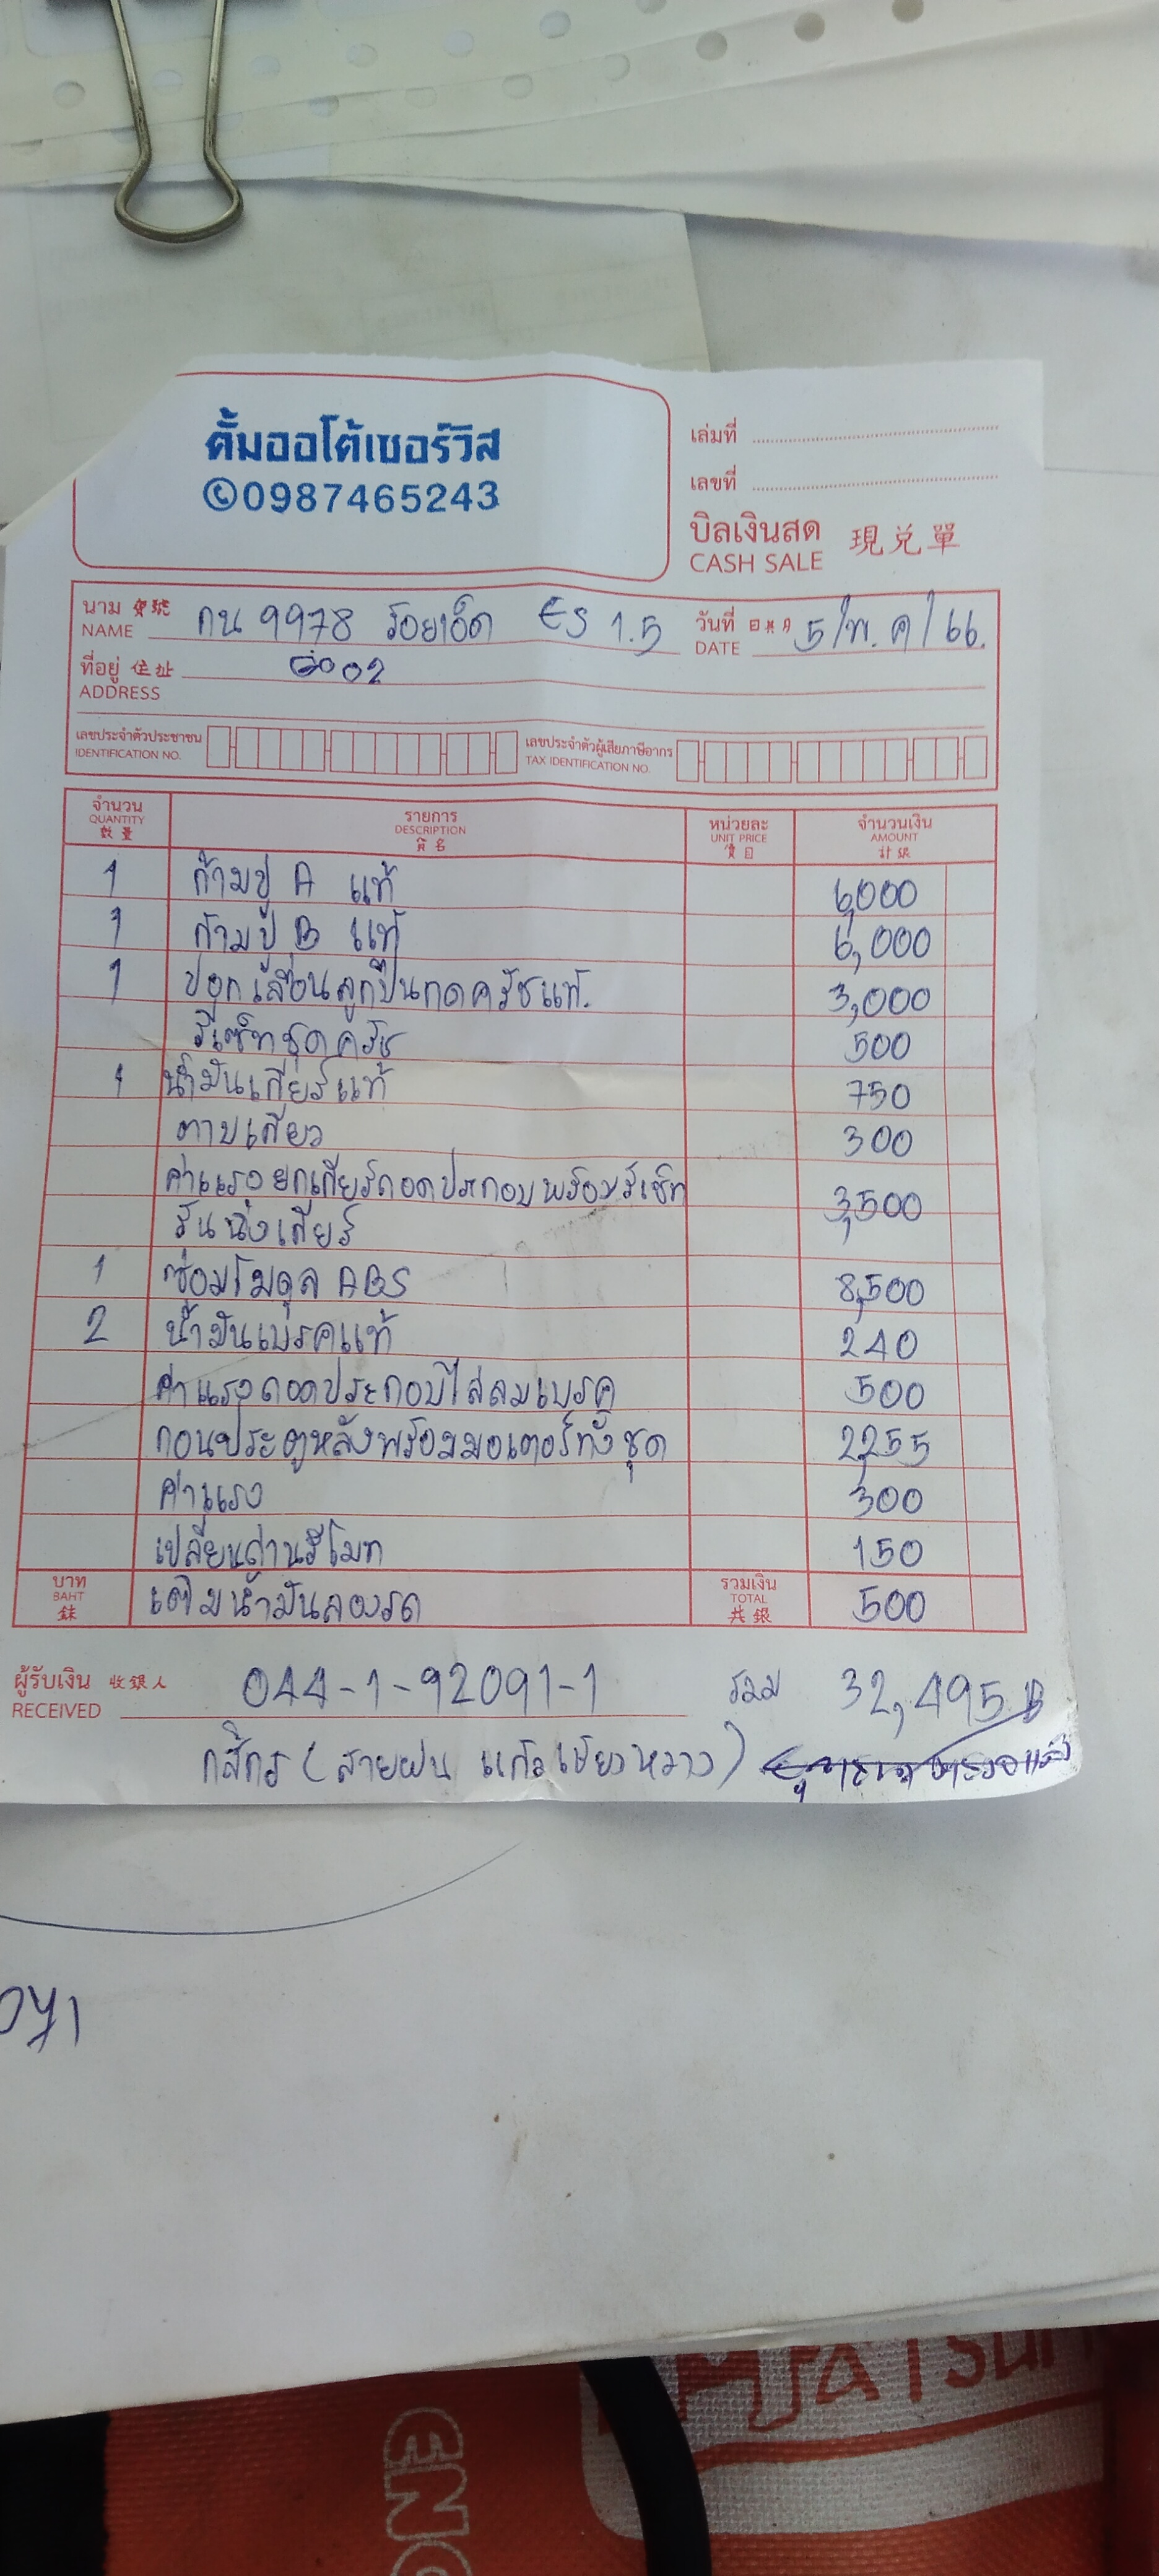 ตั้มออโต้เซอร์วิส
✆0987465243
เล่มที่
เลขที่
บิลเงินสด 現兑單
CASH SALE
นาม 寶號 กน 9978 ร้อยเอ็ด ES 1.5
NAME
วันที่ 日期 5/พ.ค/66.
DATE
ที่อยู่ 住址
ADDRESS
เลขประจำตัวประชาชน
IDENTIFICATION NO.
เลขประจำตัวผู้เสียภาษีอากร
TAX IDENTIFICATION NO.
จำนวน รายการ หน่วยละ จำนวนเงิน
QUANTITY DESCRIPTION UNIT PRICE AMOUNT
數量
1 ก้ามปู A แท้ 6,000
1 ก้ามปู B แท้ 6,000
1 ปอกเลื่อนลูกปืนกดครัชแท้. 3,000
รีเซ็ทชุดครัช 500
1 น้ำมันเกียร์แท้ 750
ตาบเกียว 300
ค่าแรงยกเกียร์ถอดประกอบพร้อมรีเซ็ท 3,500
รันนิ่งเกียร์
1 ซ่อมโมดูล ABS 8,500
2 น้ำมันเบรคแท้ 240
ค่าแรงถอดประกอบไล่ลมเบรค 500
กอนประตูหลังพร้อมมอเตอร์ทั้งชุด 2,255
ค่าแรง 300
เปลี่ยนถ่านรีโมท 150
บาท
BAHT
เติมน้ำมันลองรถ
รวมเงิน
TOTAL
共銀
500
ผู้รับเงิน 收銀人 044-1-92091-1 รวม 32,495 B
RECEIVED
กสิกร (สายฝน แก้วเชียงหวาง)
ENG